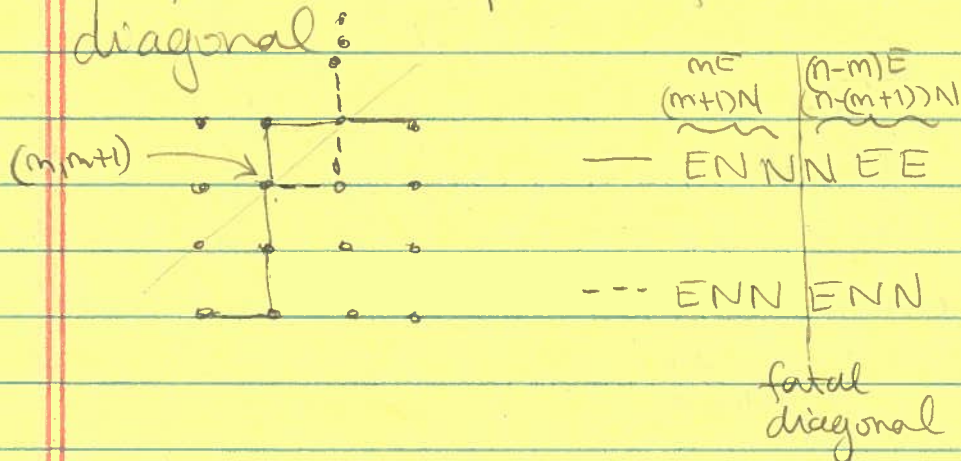 diagonal
mE (n-m)E
(m+1)N (n-(m+1))N
(m,m+1)
— ENN NEE
--- ENN ENN
fatal
diagonal